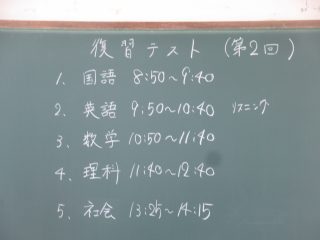 復習テスト (第2回)
1. 国語 8:50~9:40
2. 英語 9:50~10:40 リスニング
3. 数学 10:50~11:40
4. 理科 11:40~12:40
5. 社会 13:25~14:15